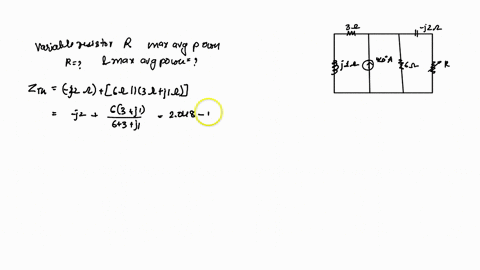 Variable resistor R max avg power
R=? & max avg power=?
Z_Th = (-j2 Ω) + [6Ω || (3Ω + j1Ω)]
= -j2 + 6(3+j1) / 6+3+j1 = 2.048 - 1
3Ω
-j2Ω
j1Ω
4∠0° A
6Ω
R